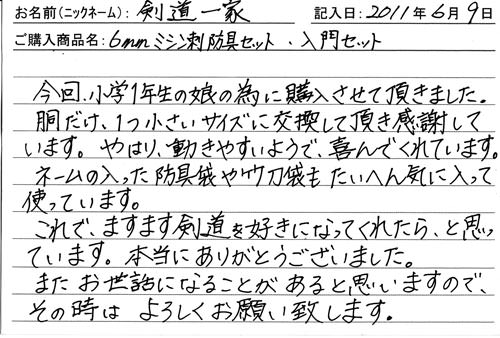 お名前(ニックネーム): 剣道一家 記入日: 2011年6月9日
ご購入商品名: 6mmミシン刺防具セット、入門セット
今回、小学1年生の娘の為に購入させて頂きました。
胴だけ、1つ小さいサイズに交換して頂き感謝して
います。やはり、動きやすいようで、喜んでくれています。
ネームの入った防具袋や竹刀袋もたいへん気に入って
使っています。
これで、ますます剣道を好きになってくれたら、と思っ
ています。本当にありがとうございました。
またお世話になることがあると思いますので、
その時はよろしくお願い致します。